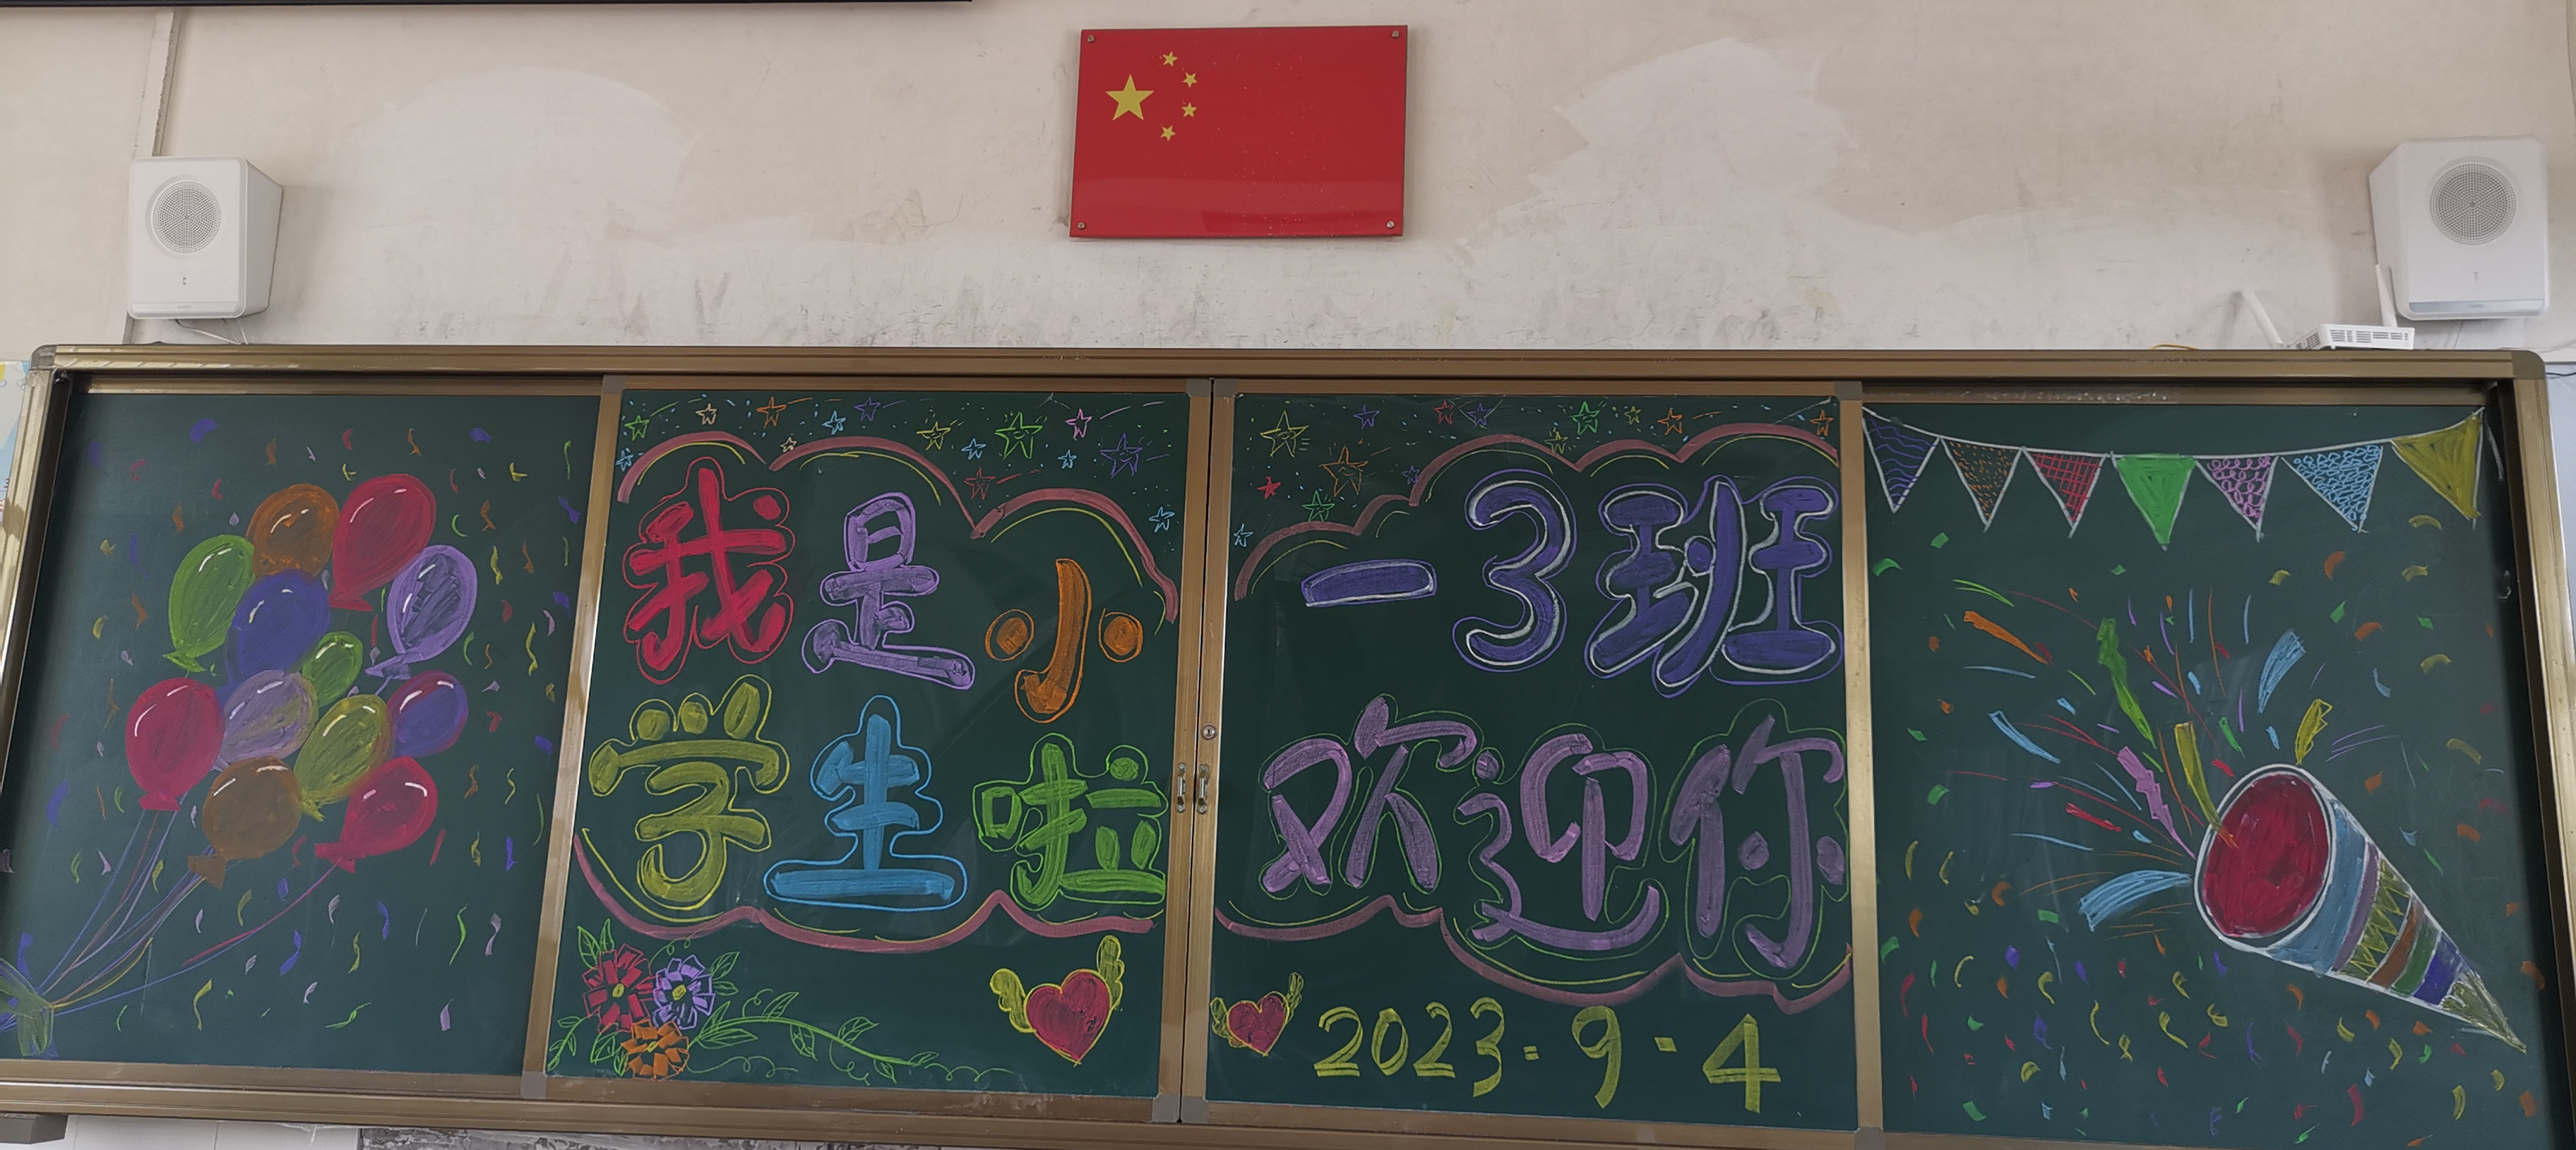 我是小
学生啦
一3班
欢迎你
2023.9.4